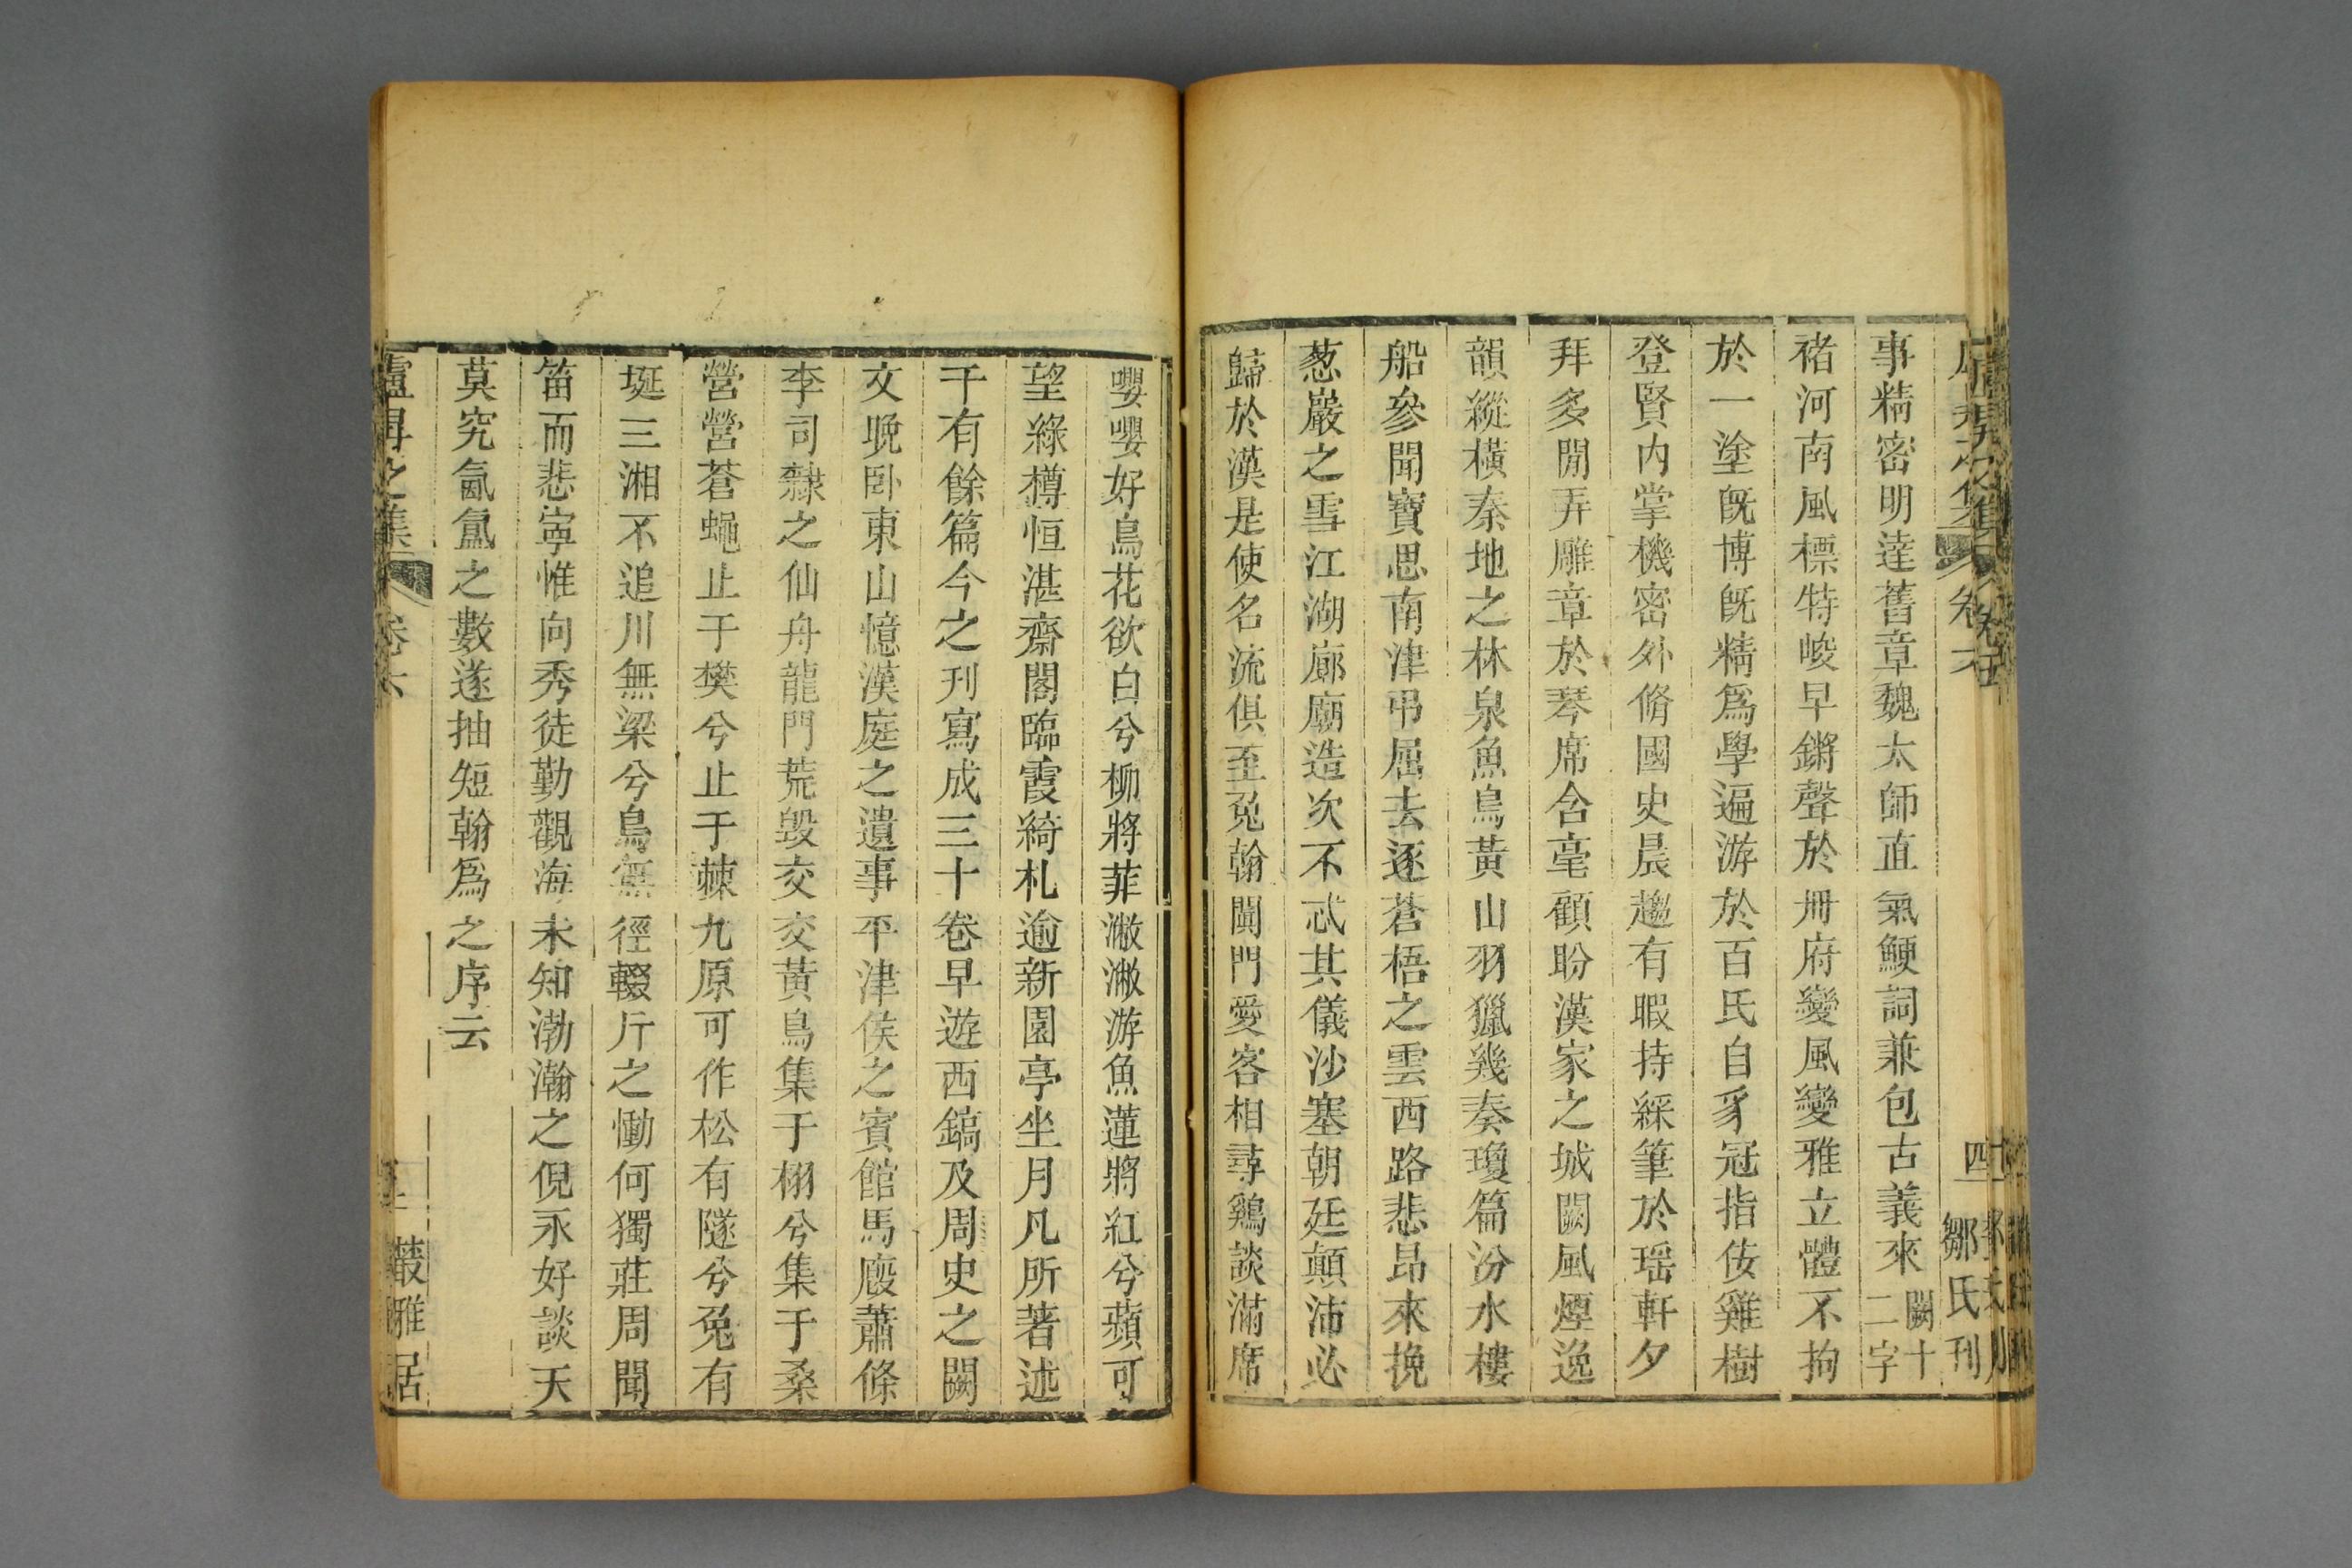 事精密明達舊章魏太師直氣鯁詞兼包古義來闕十二字
褚河南風標特峻早鏘聲於冊府變風變雅立體不拘
於一塗旣博旣精爲學遍游於百氏自豸冠指佞雞樹
登賢內掌機密外脩國史晨趨有暇持綵筆於瑶軒夕
拜多閒弄雕章於琴席含毫顧盼漢家之城闕風煙逸
韻縱橫秦地之林泉魚鳥黃山羽獵幾奏瓊篇汾水樓
船參聞寶思南津弔屈去逐蒼梧之雲西路悲昂來挽
葱巖之雪江湖廊廟造次不忒其儀沙塞朝廷顛沛必
歸於漢是使名流俱至兔翰闐門愛客相尋鷄談滿席
嚶嚶好鳥花欲白兮柳將菲潎潎游魚蓮將紅兮蘋可
望綠樽恒湛齋閣臨霞綺札逾新園亭坐月凡所著述
千有餘篇今之刋寫成三十卷早遊西鎬及周史之闕
文晚卧東山憶漢庭之遺事平津侯之賓館馬廄蕭條
李司隸之仙舟龍門荒毀交交黃鳥集于栩兮集于桑
營營蒼蠅止于樊兮止于棘九原可作松有隧兮兔有
埏三湘不追川無梁兮鳥無徑輟斤之慟何獨莊周聞
笛而悲寧惟向秀徒勤觀海未知渤瀚之倪永好談天
莫究氤氳之數遂抽短翰爲之序云
盧昇之集 卷六 五 叢雅居
卷六 四 鄒氏刋